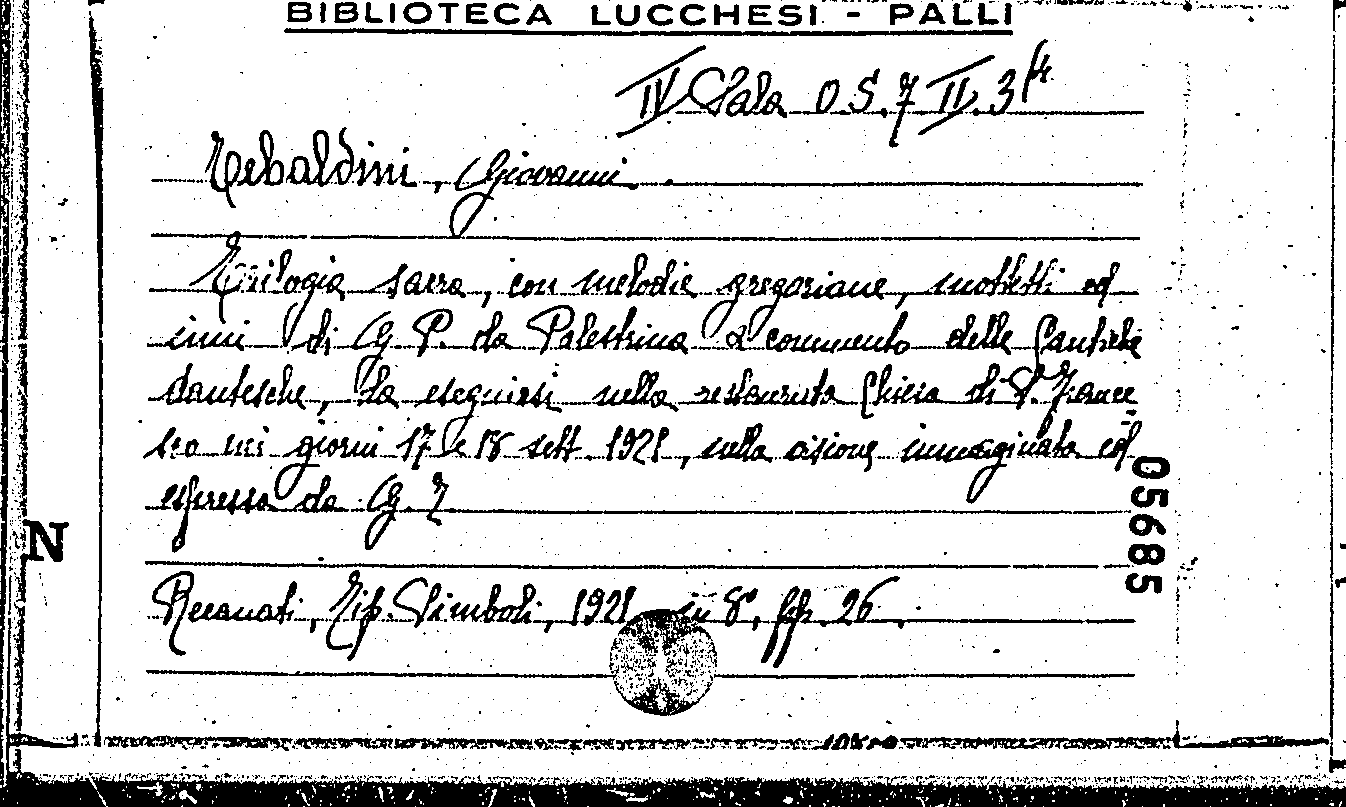 BIBLIOTECA LUCCHESI - PALLI
IV Sala O.S. 7 II. 3
Tebaldini, Giovanni.
Trilogia sacra, con melodie gregoriane, mottetti ed
inni di G. P. da Palestrina a commento delle Cantiche
dantesche, da eseguirsi nella restaurata Chiesa di S. France
sco nei giorni 17 e 18 sett. 1921, nella visione immaginata ed
espressa da G. T.
N
05685
Recanati, Tip. Simboli, 1921 in 8°, pp. 26.